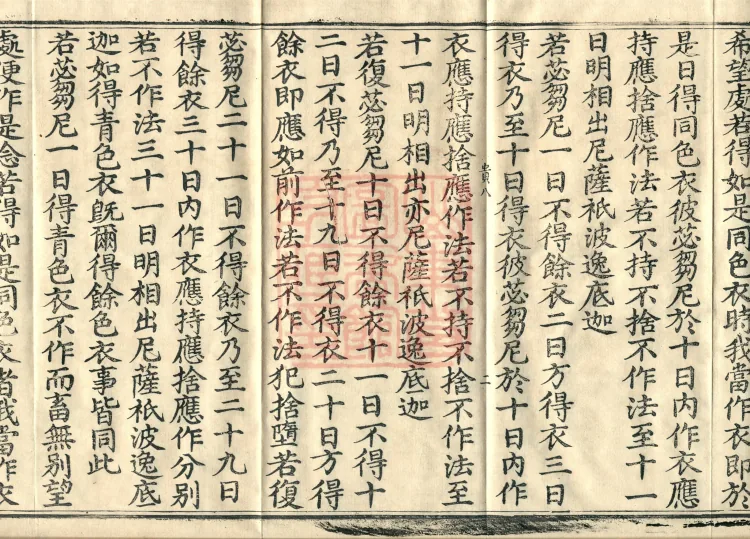 希望處若得如是同色衣時我當作衣即於
是日得同色衣彼苾芻尼於十日內作衣應
持應捨應作法若不持不捨不作法至十一
日明相出尼薩祇波逸底迦
若苾芻尼一日不得餘衣二日方得衣三日
得衣乃至十日得衣彼苾芻尼於十日內作
賣八
二
衣應持應捨應作法若不持不捨不作法至
十一日明相出亦尼薩祇波逸底迦
若復苾芻尼十日不得餘衣十一日不得十
二日不得乃至十九日不得衣二十日方得
餘衣即應如前作法若不作法犯捨墮若復
苾芻尼二十一日不得餘衣乃至二十九日
得餘衣三十日內作衣應持應捨應作分別
若不作法三十一日明相出尼薩祇波逸底
迦如得青色衣既爾得餘色衣事皆同此
若苾芻尼一日得青色衣不作而畜無別望
處便作是念若得如是同色衣者我當作衣